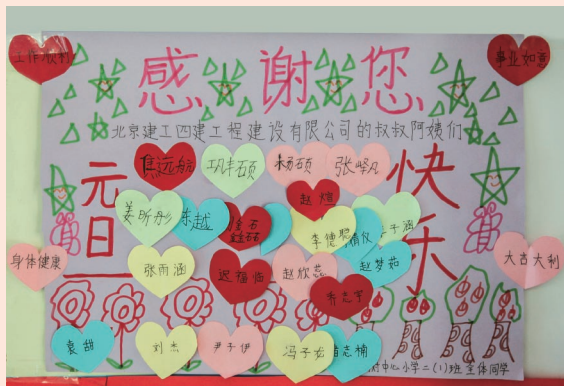 工作顺利
事业如意
感谢您
北京建工四建工程建设有限公司的叔叔阿姨们
元旦
快乐
焦远航
巩丰硕
杨硕
张峰凡
赵煊
姜昕彤
东越
李德聪
子涵
张雨涵
迟福临
赵欣蕊
赵梦茹
身体健康
大吉大利
乔志宇
袁甜
刘杰
尹子伊
冯子龙
志楠
中心小学二(1)班全体同学